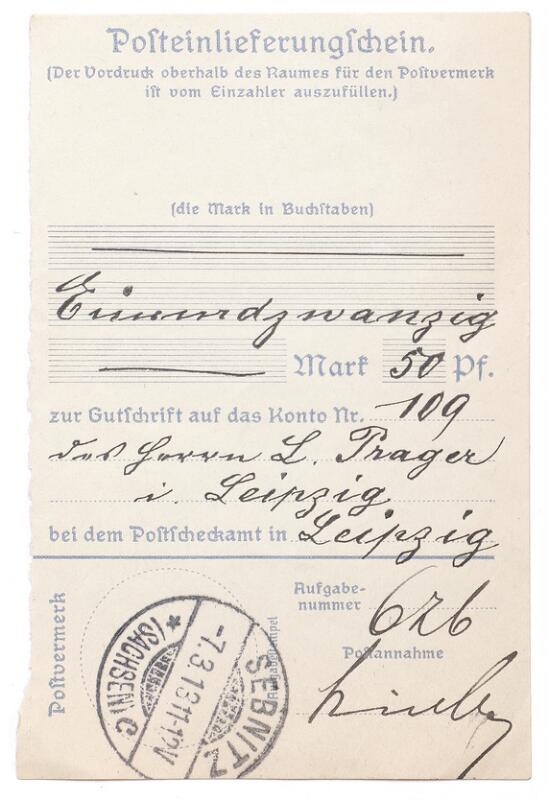 Posteinlieferungschein.
(Der Vordruck oberhalb des Raumes für den Postvermerk
ist vom Einzahler auszufüllen.)
(die Mark in Buchstaben)
Einundzwanzig
Mark 50 Pf.
zur Gutschrift auf das Konto Nr. 109
des Herrn L. Prager
i. Leipzig
bei dem Postscheckamt in Leipzig
Postvermerk
Aufgabe-
nummer 626
Postannahme
SEBNITZ
-7.3.13 11-12V
* (SACHSEN) C